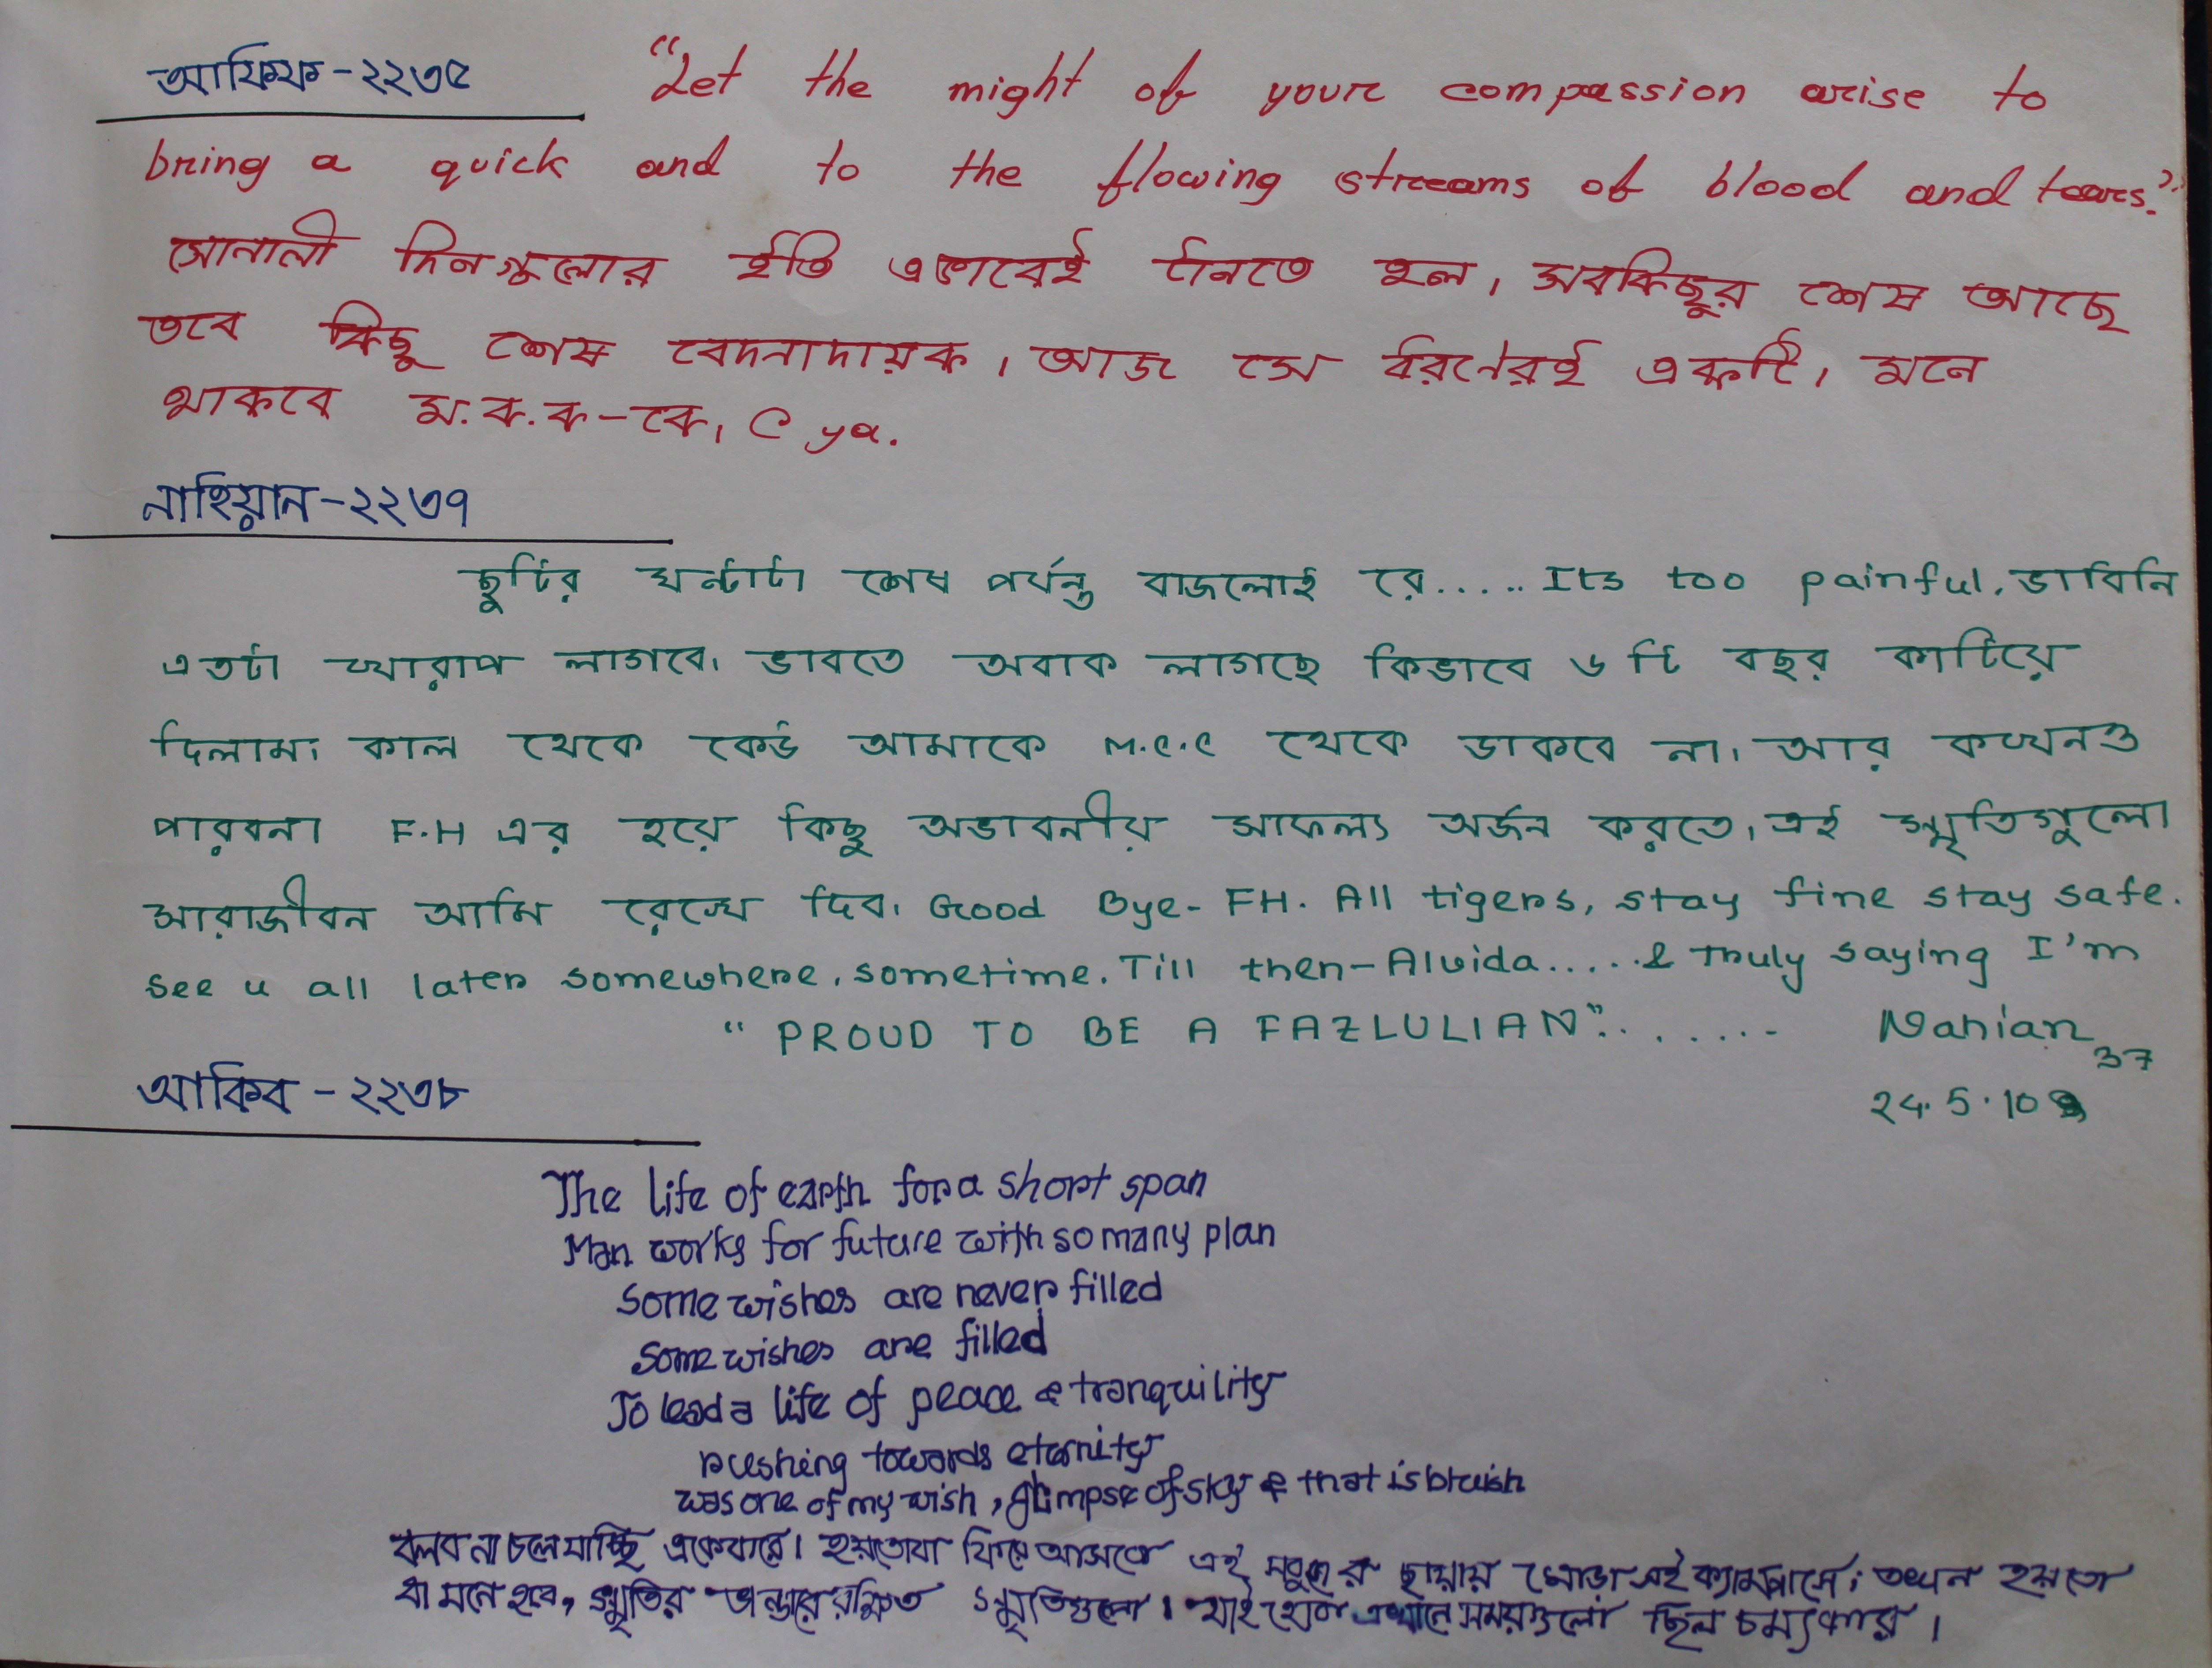 আফিফ-২২৩৫
"Let the might of your compassion arise to
bring a quick and to the flowing streams of blood and tears."
সোনালী দিনগুলোর ইতি এভাবেই টানতে হল। সবকিছুর শেষ আছে
তবে কিছু শেষ বেদনাদায়ক। আজ সে ধরণেরই একটি। মনে
থাকবে ম.ক.ক-কে। C ya.
নাহিয়ান-২২৩৭
ছুটির ঘন্টাটা শেষ পর্যন্ত বাজলোই রে..... Its too painful. ভাবিনি
এতটা খারাপ লাগবে। ভাবতে অবাক লাগছে কিভাবে ৬ টি বছর কাটিয়ে
দিলাম। কাল থেকে কেউ আমাকে M.C.C থেকে ডাকবে না। আর কখনও
পারবনা F.H এর হয়ে কিছু অভাবনীয় সাফল্য অর্জন করতে। এই স্মৃতিগুলো
সারাজীবন আমি রেখে দিব। Good Bye- FH. All tigers, stay fine stay safe.
see u all later somewhere, sometime. Till then-Alvida.....& truly saying I'm
"PROUD TO BE A FAZLULIAN"....... Nahian 37
24.5.10
আকিব - ২২৩৮
The life of earth for a short span
Man works for future with so many plan
Some wishes are never filled
Some wishes are filled
To lead a life of peace & tranquility
rushing towards eternity
was one of my wish, glimpse of sky & that is bluish
বলব না চলে যাচ্ছি একেবারে। হয়তোবা ফিরে আসবো এই সবুজের ছায়ায় মোড়া এই ক্যাম্পাসে; তখন হয়তো
বা মনে হবে, স্মৃতির ভান্ডারে রক্ষিত স্মৃতিগুলো। যাই হোক এখানে সময়গুলো ছিল চমৎকার।